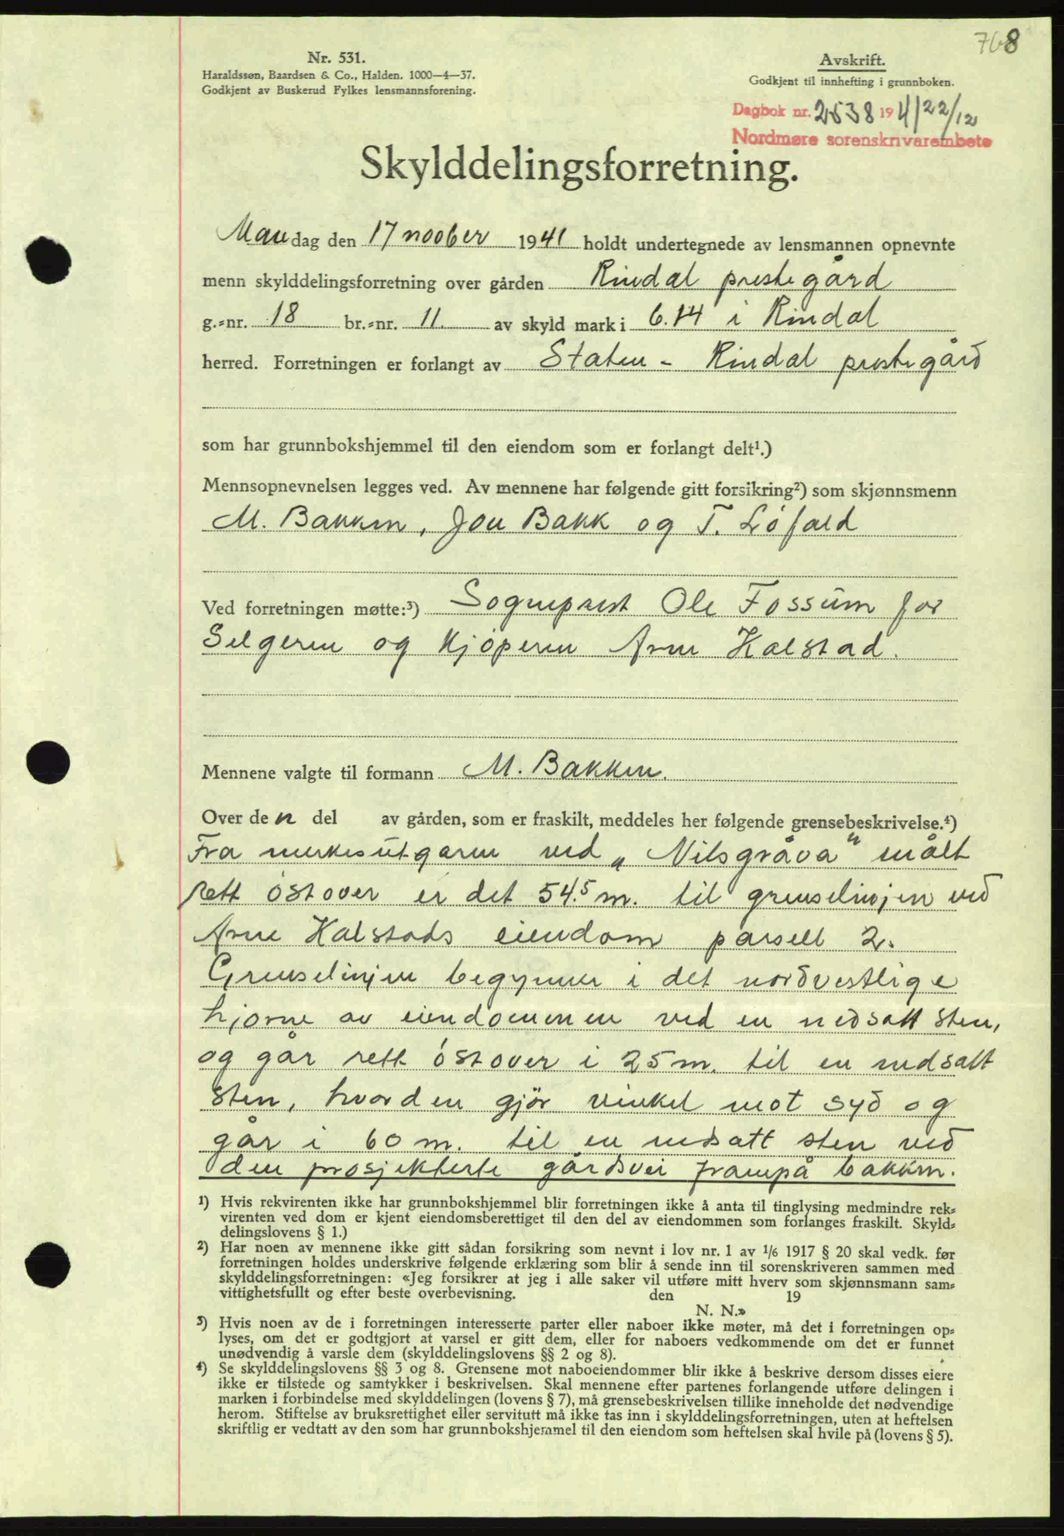 768
Nr. 531.
Haraldssøn, Baardsen & Co., Halden. 1000—4—37.
Godkjent av Buskerud Fylkes lensmannsforening.
Avskrift.
Godkjent til innhefting i grunnboken.
Dagbok nr. 2538 1941 22/12
Nordmøre sorenskrivarembete
Skylddelingsforretning.
Mandag den 17 november 1941 holdt undertegnede av lensmannen opnevnte
menn skylddelingsforretning over gården Rindal prestegård
g.=nr. 18 br.=nr. 11. av skyld mark i 6.14 i Rindal
herred. Forretningen er forlangt av Staten - Rindal prestegård
som har grunnbokshjemmel til den eiendom som er forlangt delt¹.)
Mennsopnevnelsen legges ved. Av mennene har følgende gitt forsikring²) som skjønnsmenn
M. Bakken, Jon Bakk og T. Löfald
Ved forretningen møtte:³) Sogneprest Ole Fossum for
Selgeren og kjöperen Arne Halstad.
Mennene valgte til formann M. Bakken.
Over den del av gården, som er fraskilt, meddeles her følgende grensebeskrivelse.⁴)
Fra merkesutgaren ved „Nilsgråva" målt
rett östover er det 54.5 m. til grenselinjen ved
Arne Halstads eiendom parsell 2.
Grenselinjen begynner i det nordvestlige
hjorne av eiendommen ved en nedsatt sten,
og går rett östover i 25 m. til en nedsatt
sten, hvor den gjör vinkel mot syd og
går i 60 m. til en nedsatt sten ved
den prosjekterte gårdsvei frampå bakken.
¹) Hvis rekvirenten ikke har grunnbokshjemmel blir forretningen ikke å anta til tinglysing medmindre rek=
virenten ved dom er kjent eiendomsberettiget til den del av eiendommen som forlanges fraskilt. Skyld=
delingslovens § 1.)
²) Har noen av mennene ikke gitt sådan forsikring som nevnt i lov nr. 1 av 1/6 1917 § 20 skal vedk. før
forretningen holdes underskrive følgende erklæring som blir å sende inn til sorenskriveren sammen med
skylddelingsforretningen: «Jeg forsikrer at jeg i alle saker vil utføre mitt hverv som skjønnsmann sam=
vittighetsfullt og efter beste overbevisning. den 19
N. N.»
³) Hvis noen av de i forretningen interesserte parter eller naboer ikke møter, må det i forretningen op=
lyses, om det er godtgjort at varsel er gitt dem, eller for naboers vedkommende om det er funnet
unødvendig å varsle dem (skylddelingslovens §§ 2 og 8).
⁴) Se skylddelingslovens §§ 3 og 8. Grensene mot naboeiendommer blir ikke å beskrive dersom disses eiere
ikke er tilstede og samtykker i beskrivelsen. Skal mennene efter partenes forlangende utføre delingen i
marken i forbindelse med skylddelingen (lovens § 7), må grensebeskrivelsen tillike inneholde det nødvendige
herom. Stiftelse av bruksrettighet eller servitutt må ikke tas inn i skylddelingsforretningen, uten at heftelsen
skriftlig er vedtatt av den som har grunnbokshjemmel til den eiendom som heftelsen skal hvile på (lovens § 5).